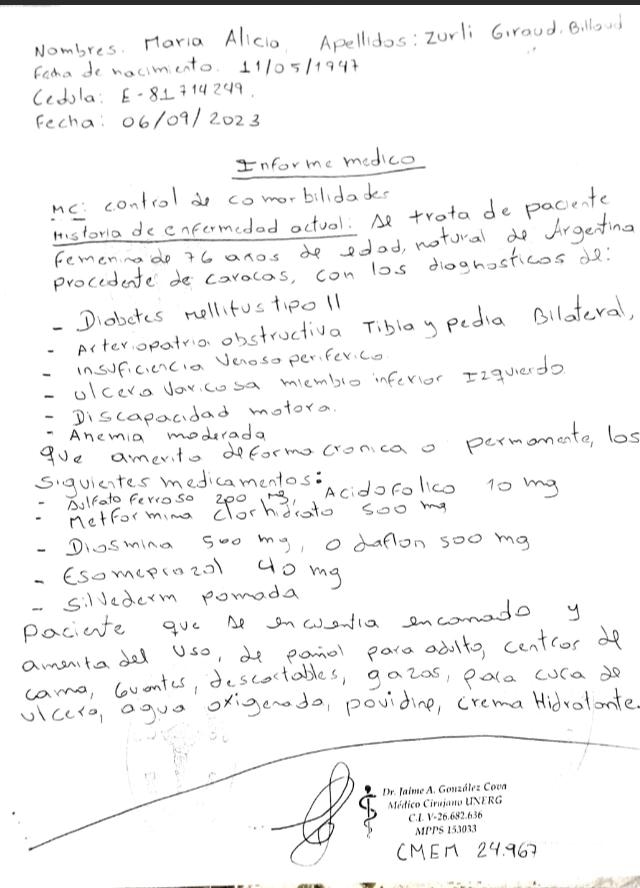 Nombres. Maria Alicia. Apellidos: Zurli Giraud. Billoud
Fecha de nacimiento. 11/05/1947
Cedula: E-81714249.
Fecha: 06/09/2023
Informe medico
MC: control de comorbilidades
Historia de enfermedad actual: Se trata de paciente
femenina de 76 años de edad, natural de Argentina
procedente de caracas, con los diagnosticos de:
- Diabetes Mellitus tipo II
- Arteriopatria obstructiva Tibia y pedia Bilateral,
- insuficiencia Venosa periferica.
- ulcera Varicosa miembro inferior Izquierdo
- Discapacidad motora.
- Anemia moderada
que amerita de forma cronica o permamente, los
siguientes medicamentos:
- Sulfato Ferroso 200 mg, Acido Folico 10 mg
- Metformina clorhidrato 500 mg
- Diosmina 500 mg, o daflon 500 mg
- Esomeprazol 40 mg
- Silvederm pomada
Paciente que se encuentra encamado y
amerita del uso, de pañal para adulto, centros de
cama, Guantes, descartables, gazas, para cura de
ulcera, agua oxigenada, povidine, crema Hidratante.
Dr. Jaime A. González Cova
Médico Cirujano UNERG
C.I. V-26.682.636
MPPS 153033
CMEM 24.967